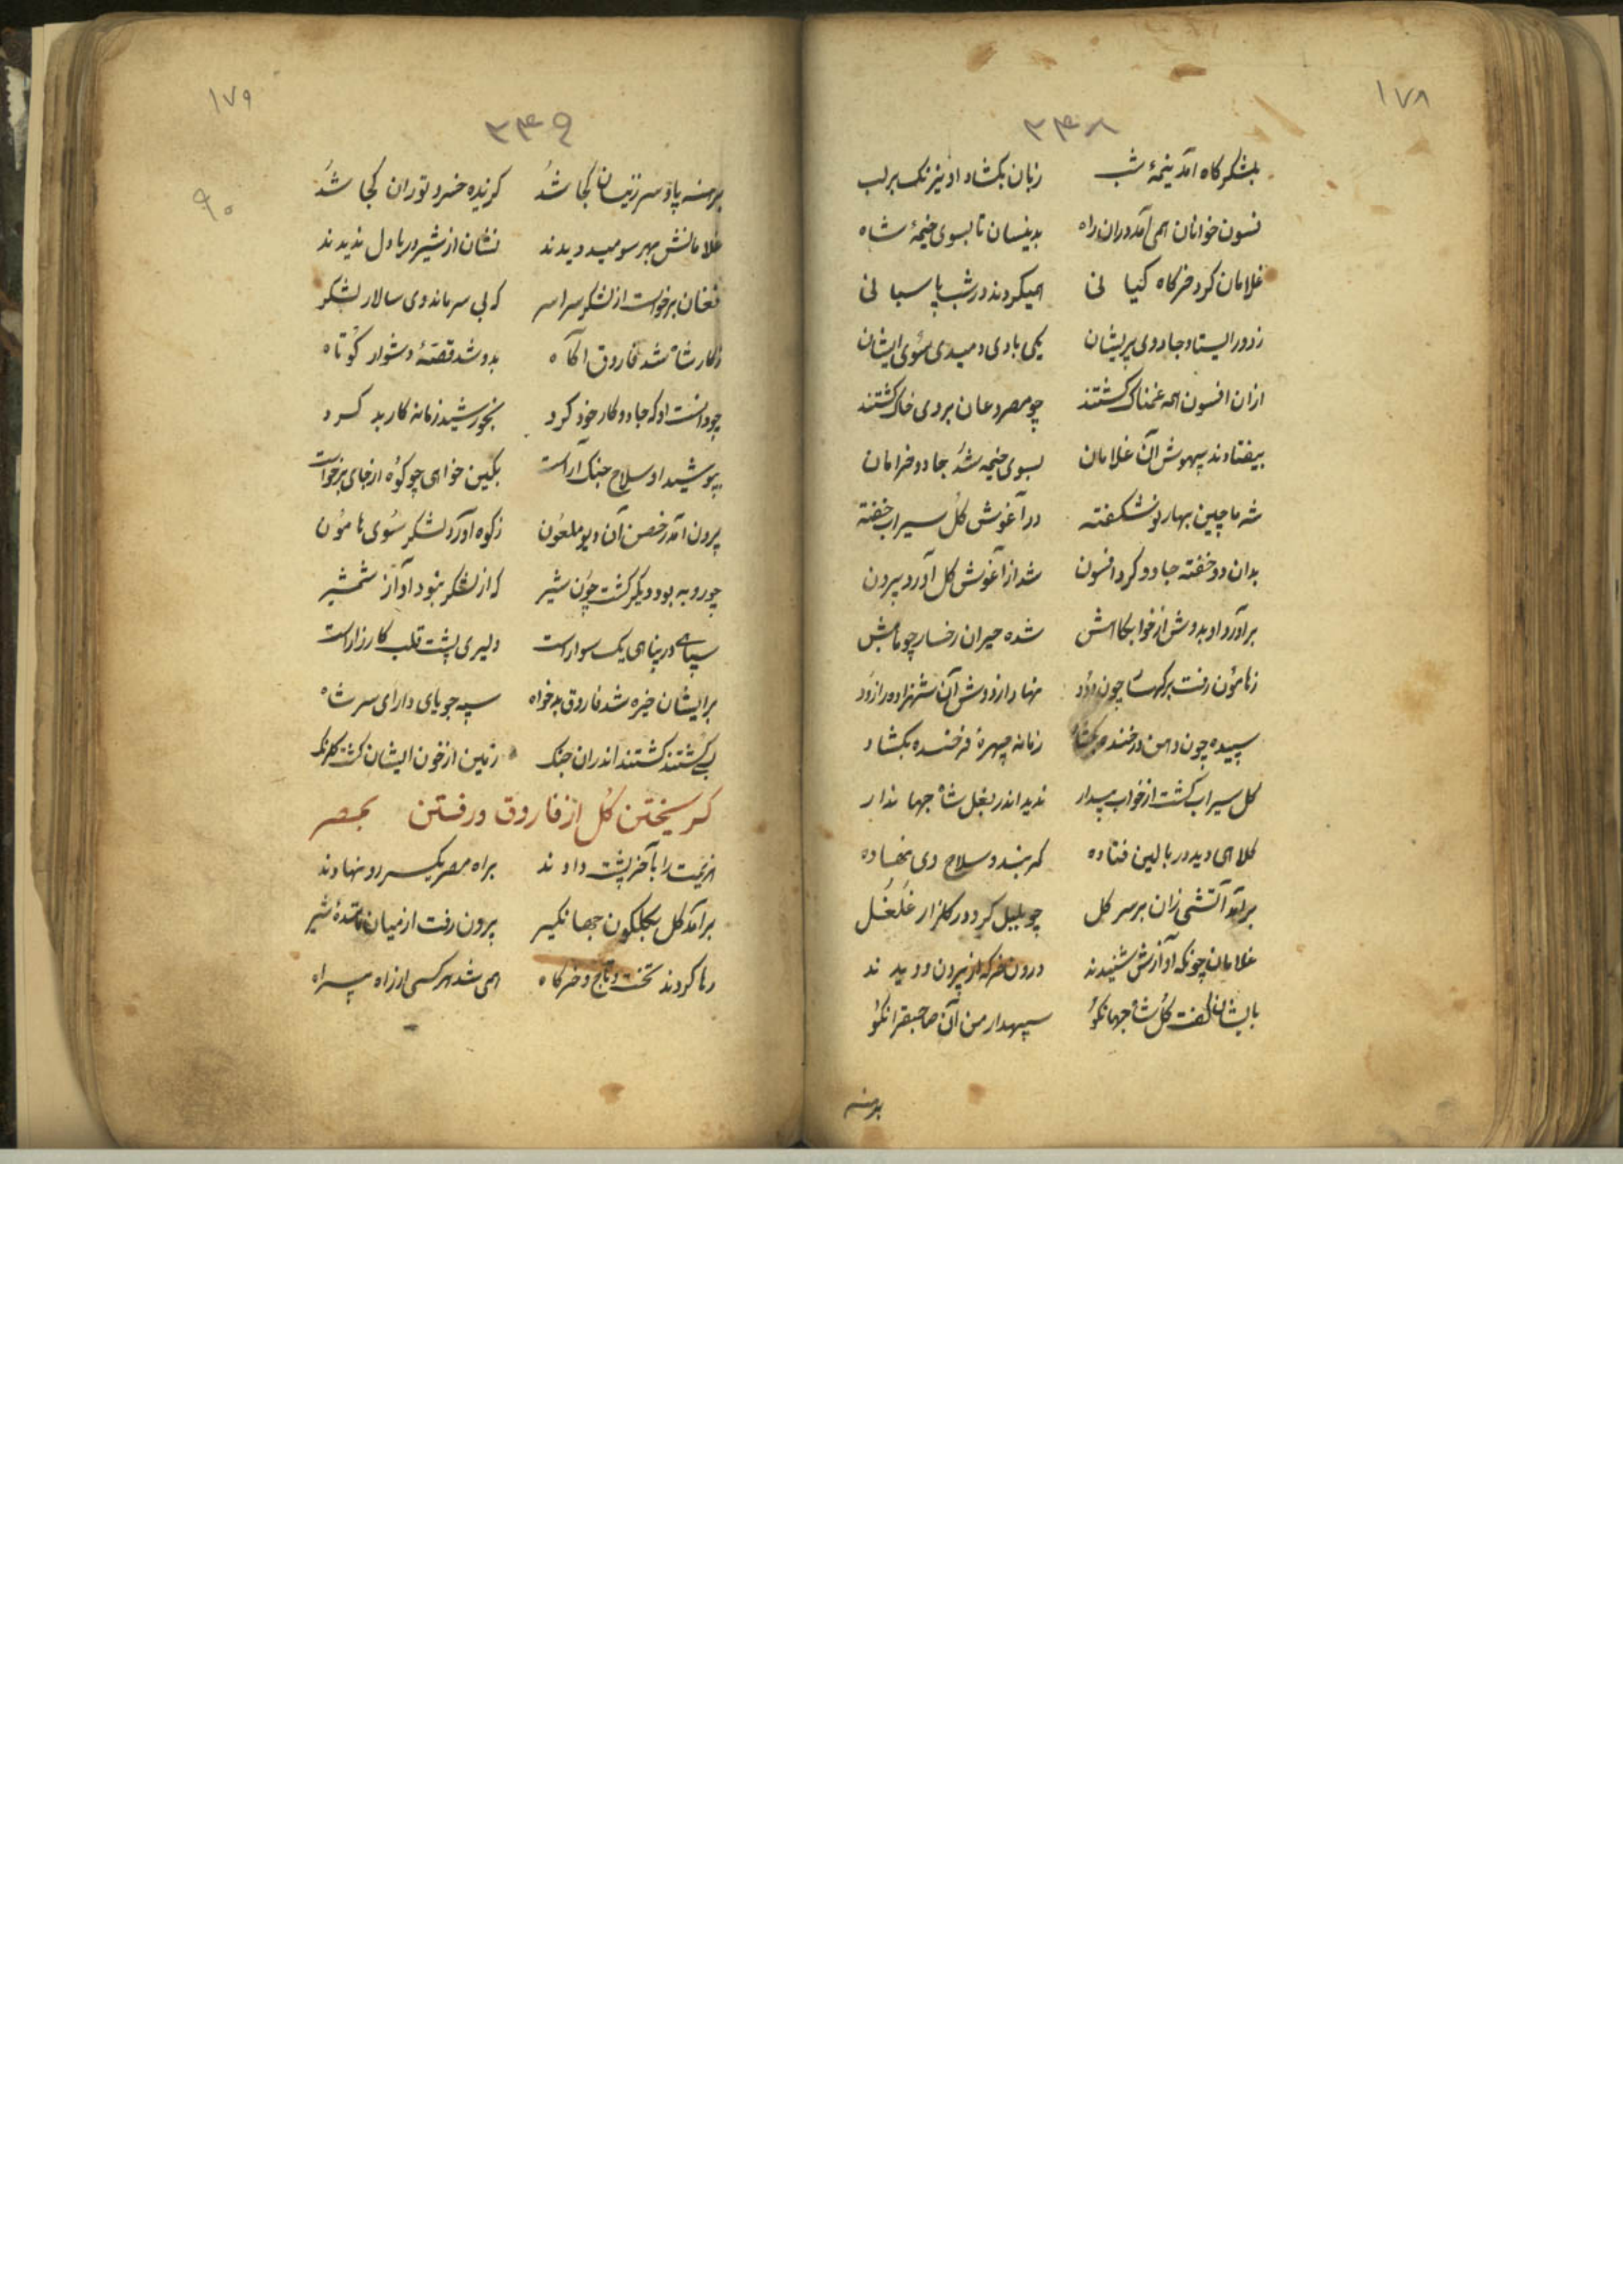 ۱۷۸
۲۴۸
بلشکرکاه آمد نیمهٔ شب زبان بکشاد او نیرنک برلب
فسون خوانان همی آمد دران راه بدینسان تا بسوی خیمهٔ شاه
غلامان کرد خرکاه کیانی همیکردند در شب پاسبانی
ز دور ایستاد جادوی پریشان یکی بادی دمیدی سوی ایشان
ازان افسون همه غمناک کشتند چو مصروعان بروی خاک کشتند
بیفتادند بیهوش آن غلامان بسوی خیمه شد جادو خرامان
شه ماچین بهار نوشکفته در آغوش کل سیراب خفته
بدان دو خفته جادو کرد افسون شد از آغوش کل آورد بیرون
برآورد او بدوش از خوابکاهش شده حیران رخسار چو ماهش
ز هامون رفت بر کهسار چون دود نهاد از دوش آن شهزاده را زود
سپیده چون دهن در خنده بکشاد زمانه چهرهٔ فرخنده بکشاد
کل سیراب کشت از خواب بیدار ندید اندر بغل شاه جهاندار
کلاهی دید در بالین فتاده کمربند و سلاح وی نهاده
برآمد آتشی زان بر سر کل چو بلبل کرد در کلزار غلغل
غلامان چونکه آوازش شنیدند درون خرکه از بیرون دویدند
بایشان کفت کل شاه جهانکو سپهدار من آن صاحبقران کو
برهنه
۱۷۹
۲۴۹
۹۰
برهنه پا و سر زینسان کجا شد کزیده خسرو توران کجا شد
غلامانش بهر سو میدویدند نشان از شیر دریادل ندیدند
فغان برخواست از لشکر سراسر که بی سر ماند وی سالار لشکر
ز کار شاه شد فاروق آکاه بدو شد قصهٔ دشوار کوتاه
چو دانست او که جادو کار خود کرد بخورشید زمانه کار بد کرد
بپوشید او سلاح جنک آراست بکین خواهی چو کوه از جای برخواست
برون آمد ز حصن آن دیو ملعون ز کوه آورد لشکر سوی هامون
چو روبه بود دیکر کشت چون شیر که از لشکر نبود آواز شمشیر
سپاهی در پناهی یک سوار است دلیری پشت قلب کارزار است
برایشان خیره شد فاروق بدخواه سپه جویای دارای سر شاه
بسی کشتند کشتند اندران جنک زمین از خون ایشان کشت کلرنک
کریختن کل از فاروق و رفتن بمصر
هزیمت را بآخر پشت دادند براه مصر یکسر رو نهادند
برآمد کل بکلکون جهانکیر برون رفت از میان مانندهٔ شیر
رها کردند تخت و تاج و خرکاه همی شد هر کسی از راه بیراه